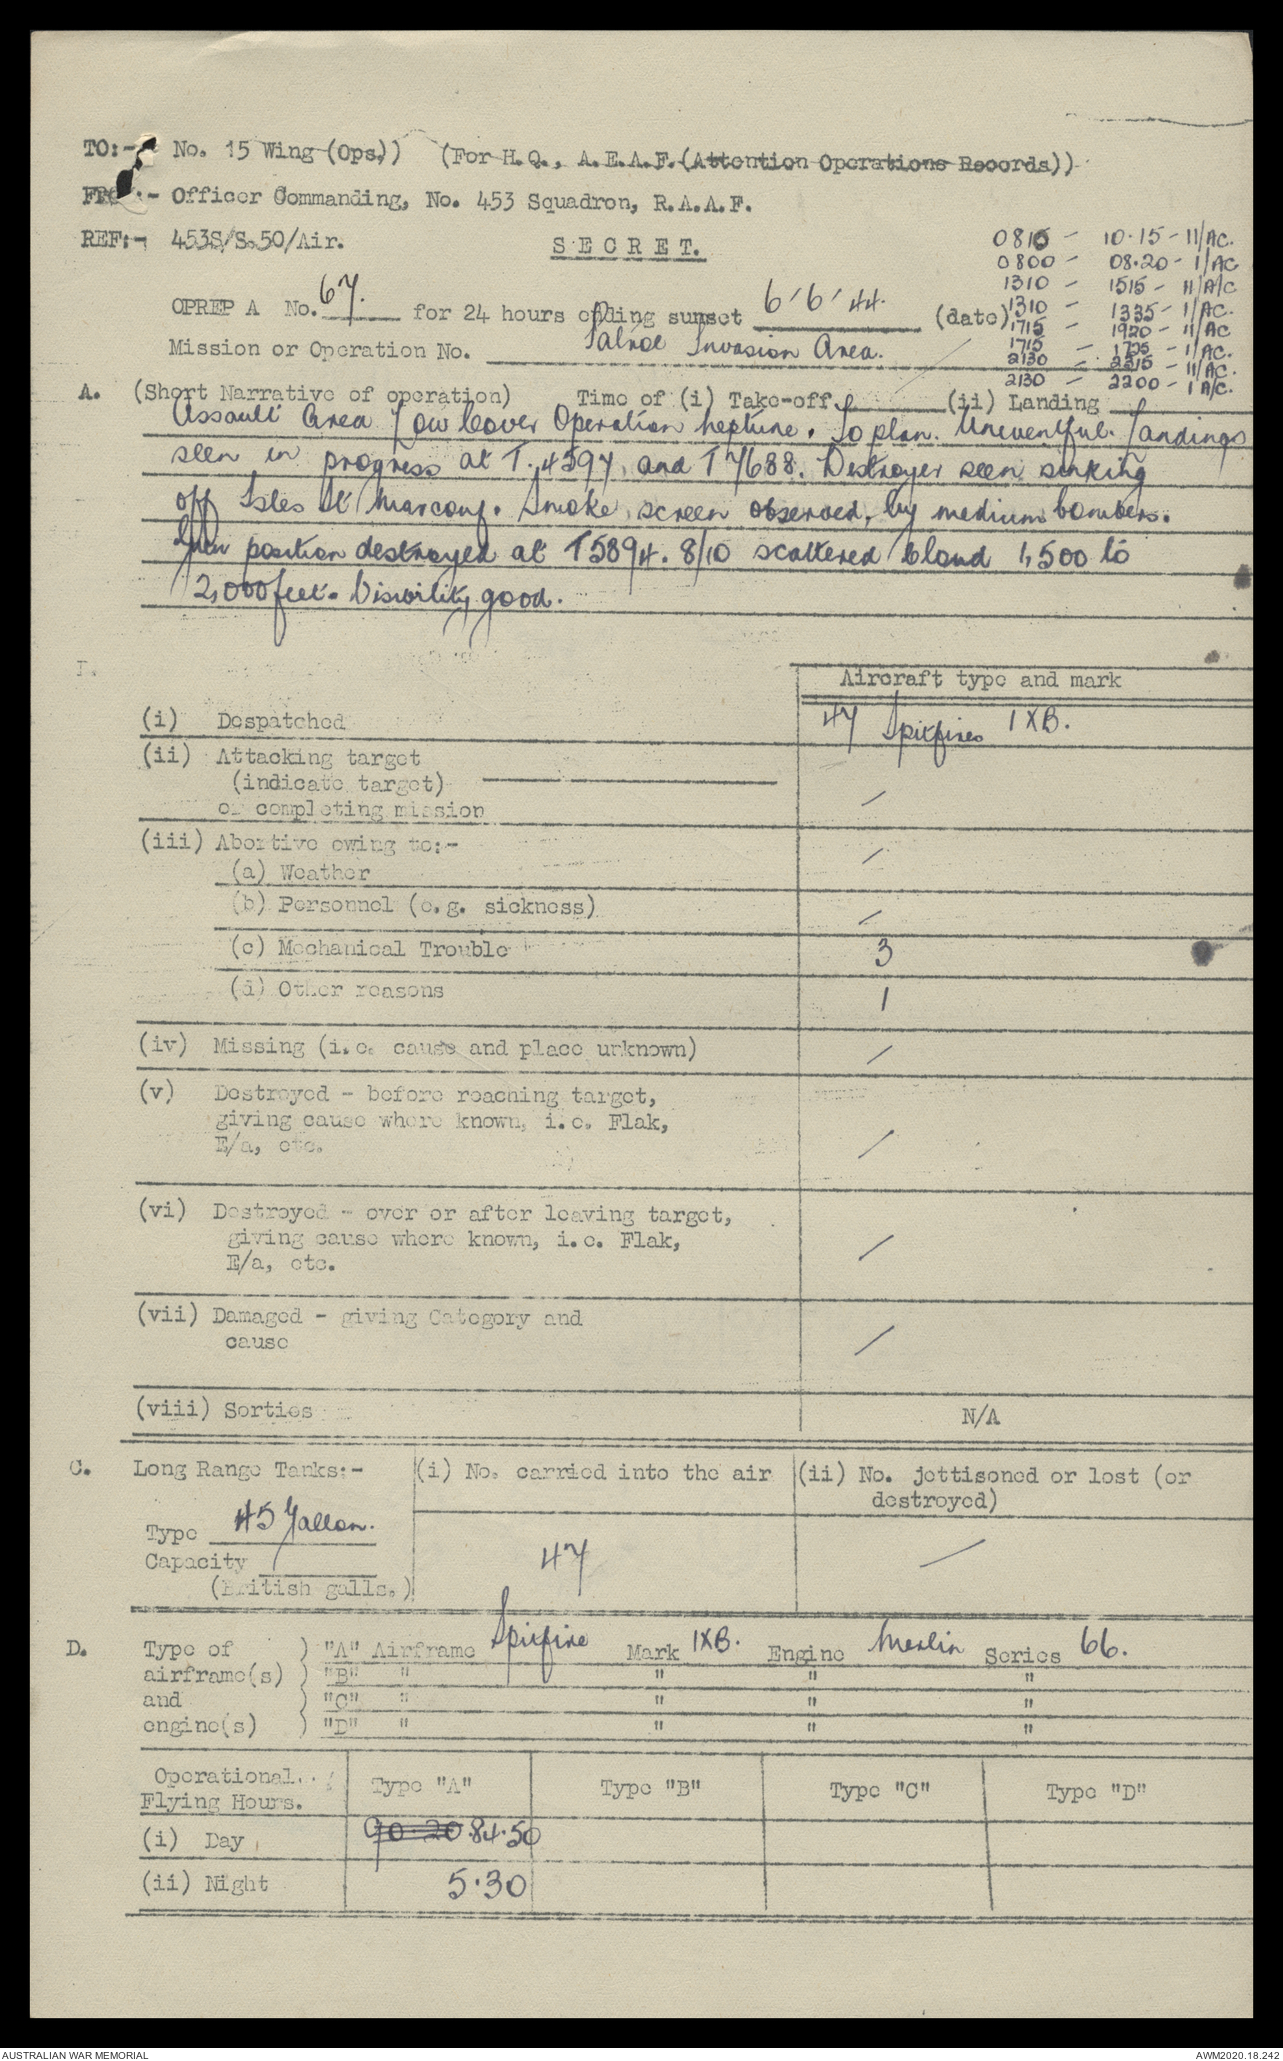 TO:- No. 15 Wing (Ops)) (For H.Q., A.E.A.F. (Attention Operations Records))
:- Officer Commanding, No. 453 Squadron, R.A.A.F.
REF:- 453S/S.50/Air.
SECRET.
0815 - 10.15 - 11/AC.
0800 - 08.20 - 1/AC
1310 - 1515 - 11/A/C
1310 - 1335 - 1/AC.
1715 - 1920 - 11/AC
1715 - 1725 - 1/AC.
2130 - 2315 - 11/AC.
2130 - 2200 - 1 A/C.
OPREP A No. 67. for 24 hours ending sunset 6'6'44. (date)
Mission or Operation No. Patrol Invasion Area.
A. (Short Narrative of operation) Time of (i) Take-off (ii) Landing
Assault Area Low Cover Operation Neptune. To plan. Uneventful. Landings
seen in progress at T.4597, and T7688. Destroyer seen sinking
off Isles St Marcouf. Smoke screen observed, by medium bombers.
Gun position destroyed at T5894. 8/10 scattered cloud 1,500 to
2,000 feet. Visibility good.
Aircraft type and mark
(i) Despatched 47 Spitfires IXB.
(ii) Attacking target
(indicate target)
or completing mission /
(iii) Abortive owing to:-
(a) Weather /
(b) Personnel (e.g. sickness) /
(c) Mechanical Trouble 3
(d) Other reasons 1
(iv) Missing (i.e. cause and place unknown) /
(v) Destroyed - before reaching target,
giving cause where known, i.e. Flak,
E/a, etc. /
(vi) Destroyed - over or after leaving target,
giving cause where known, i.e. Flak,
E/a, etc. /
(vii) Damaged - giving Category and
cause /
(viii) Sorties N/A
C. Long Range Tanks:- (i) No. carried into the air (ii) No. jettisoned or lost (or
destroyed)
Type 45 Gallon.
Capacity 47 /
(British galls.)
D. Type of ) "A" Airframe Spitfire Mark IXB. Engine Merlin Series 66.
airframe(s) ) "B" " " " "
and ) "C" " " " "
engine(s) ) "D" " " " "
Operational
Flying Hours. Type "A" Type "B" Type "C" Type "D"
(i) Day 90.20 84.50
(ii) Night 5.30
AUSTRALIAN WAR MEMORIAL AWM2020.18.242